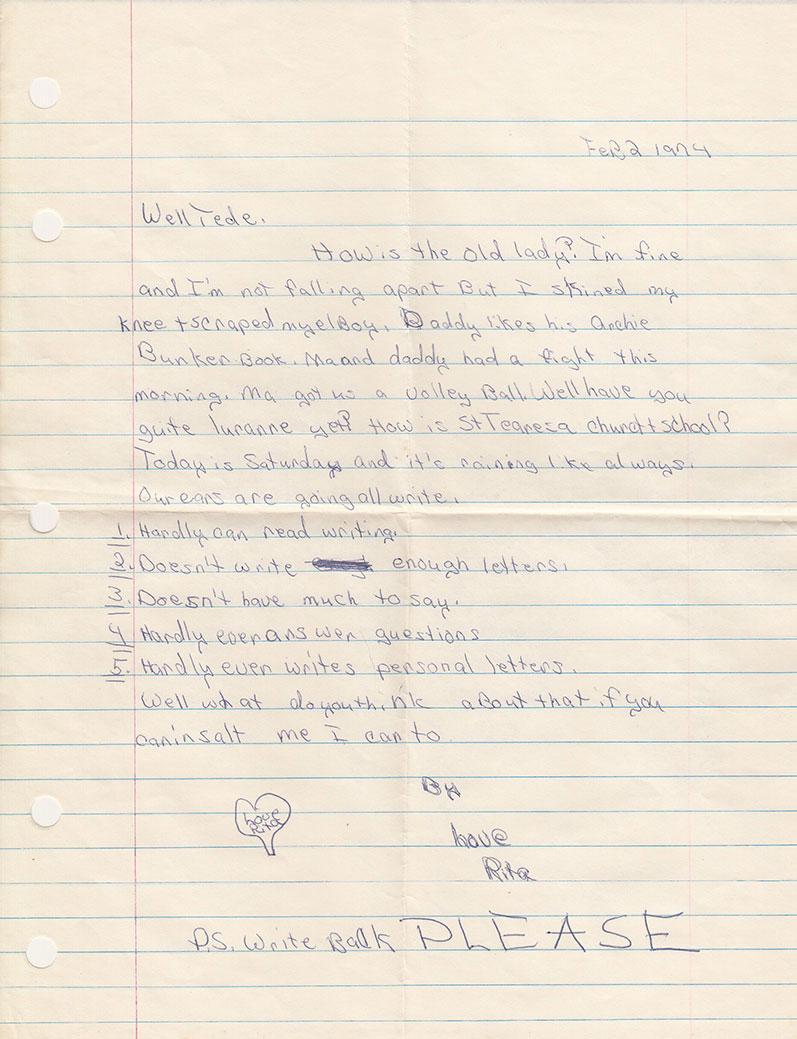 FeB 2 1974
Well Tede.
How is the old lady? I'm fine
and I'm not falling apart But I skined my
knee + scraped my elBoy. Daddy likes his Archie
Bunker Book. Ma and daddy had a fight this
morning. Ma got us a Volley Ball. Well have you
quite luranne yet? How is St Tearesa church + school?
Today is Saturday and it's raining like always.
Our ears are going all write.
1. Hardly can read writing.
2. Doesn't write enough letters.
3. Doesn't have much to say.
4 Hardly ever answer questions
5. Hardly ever writes personal letters.
Well what do you think aBout that if you
can insalt me I can to
By
Love Rita
Love
Rita
P.S. Write Back PLEASE